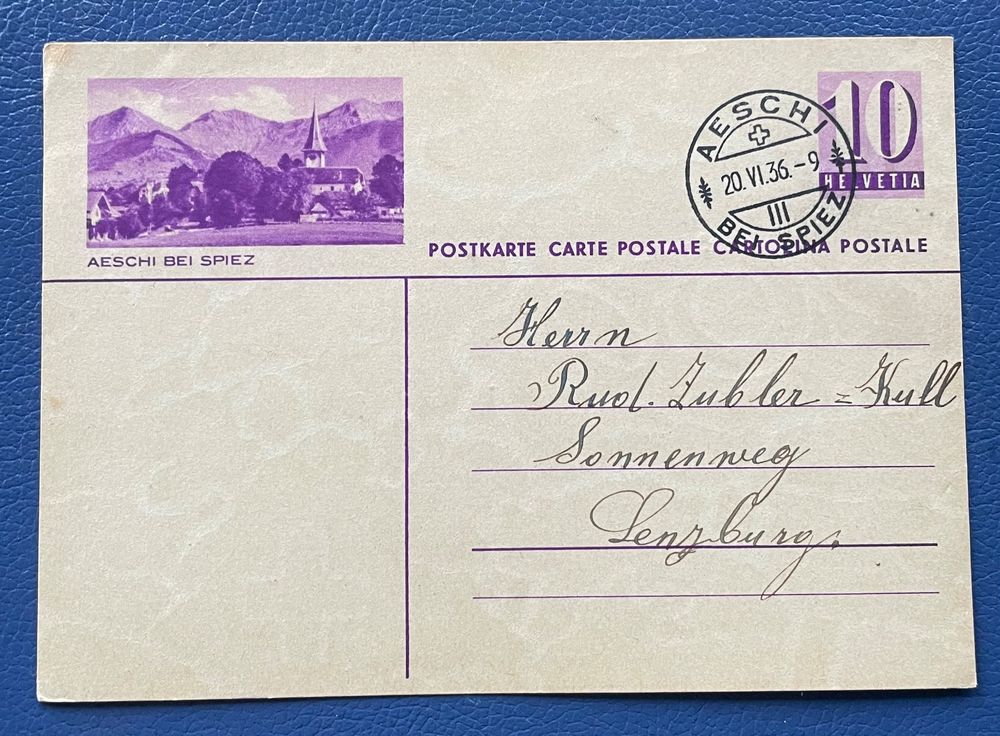 AESCHI BEI SPIEZ
10
HELVETIA
AESCHI
20.VI.36.-9
III
BEI SPIEZ
POSTKARTE CARTE POSTALE CARTOLINA POSTALE
Herrn
Rud. Zubler = Kull
Sonnenweg
Lenzburg.